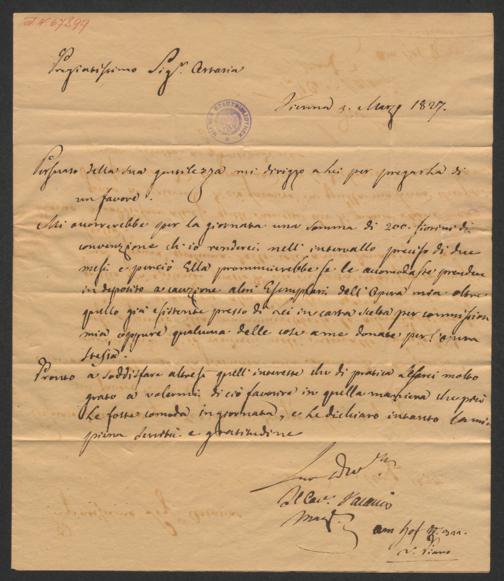 J.N. 67899
Pregiatissimo Sig.r Artaria
Vienna 3. Marzo 1827.
Persuaso della sua gentilezza mi dirigo a Lei per pregarla di
un favore.
Mi occorrerebbe per la giornata una somma di 200. fiorini di
convenzione ch'io renderei nell intervallo preciso di due
mesi e perciò Ella
in deposito a cauzione alcuni Esemplari dell'Opera mia oltre
quello già esistente presso di Lei in carta per commissione
mia oppure qualcuna delle cose a me donate per l'opera
stessa.
Pronto a soddisfare altresì quell interesse che di pratica molto
grato a volermi di ciò favorire in quella maniera che più
le fosse comoda in giornata, e le dichiaro intanto la mia
piena servitù e gratitudine
Suo
Il Cav.
am Hof